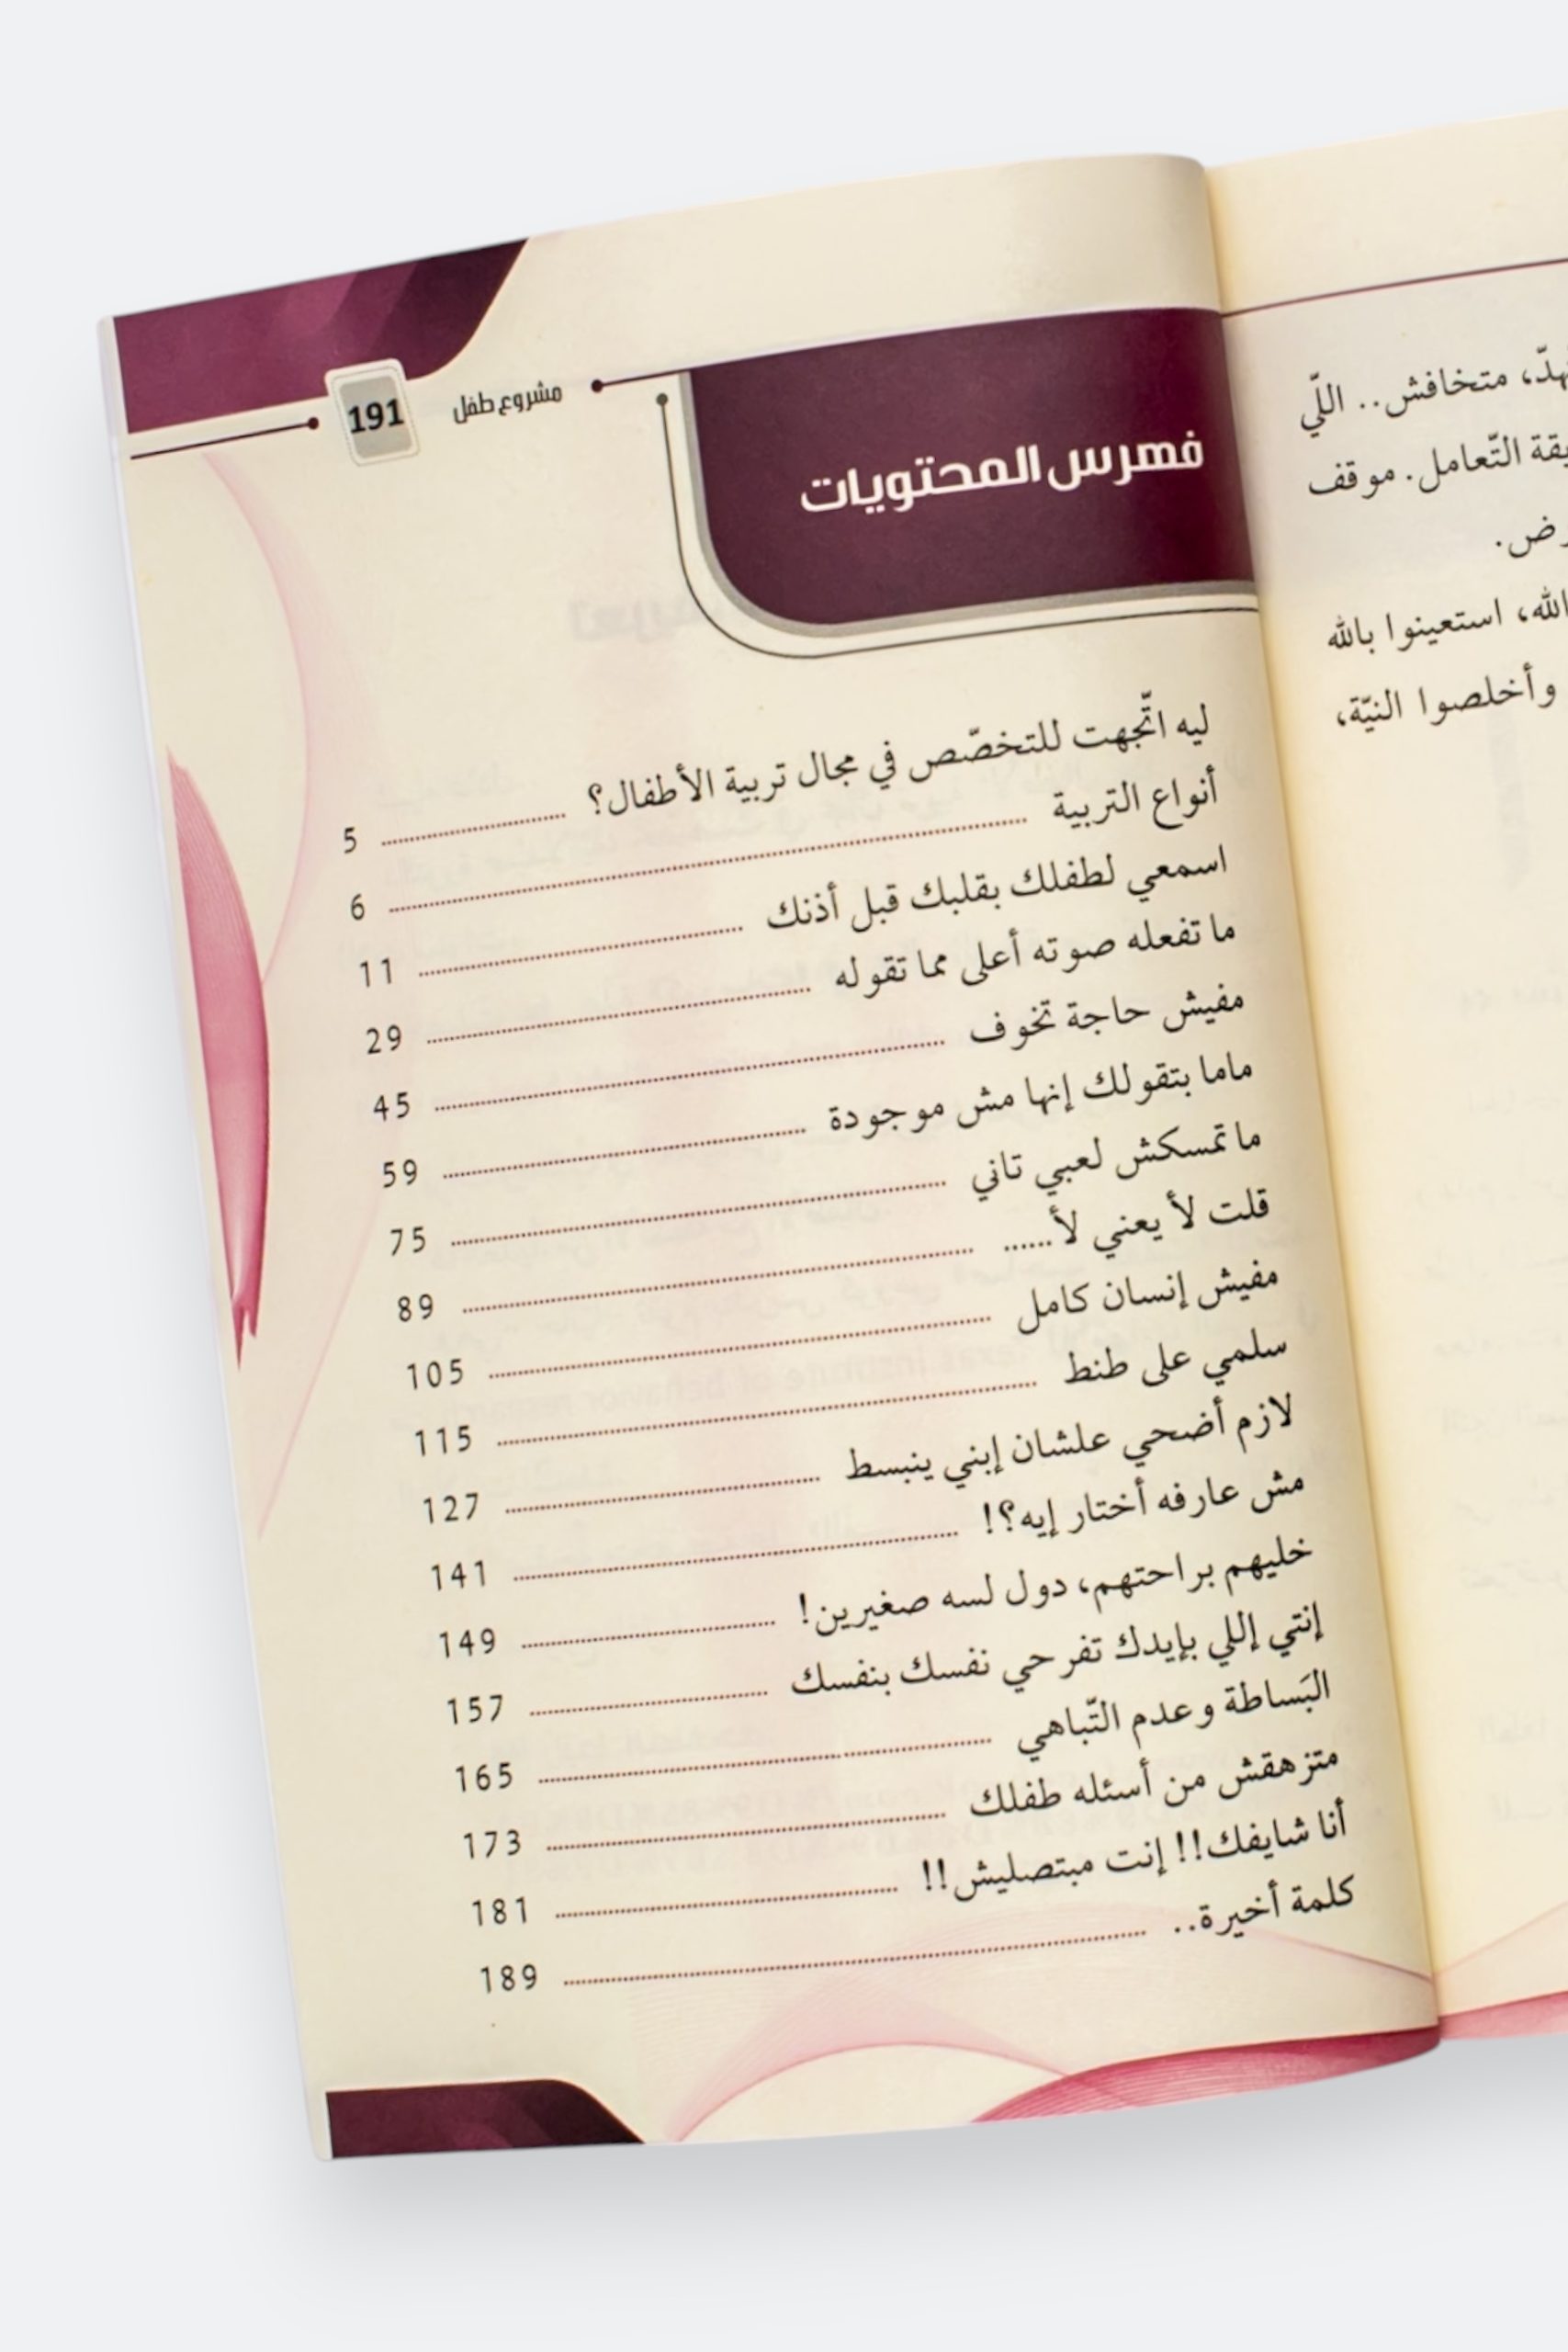 191
مشروع طفل
فهرس المحتويات
ليه اتّجهت للتخصّص في مجال تربية الأطفال؟ 5
أنواع التربية 6
اسمعي لطفلك بقلبك قبل أذنك 11
ما تفعله صوته أعلى مما تقوله 29
مفيش حاجة تخوف 45
ماما بتقولك إنها مش موجودة 59
ماتمسكش لعبي تاني 75
قلت لأ يعني لأ...... 89
مفيش إنسان كامل 105
سلمي على طنط 115
لازم أضحي علشان إبني ينبسط 127
مش عارفه أختار إيه؟! 141
خليهم براحتهم، دول لسه صغيرين! 149
إنتي إللي بإيدك تفرحي نفسك بنفسك 157
البَساطة وعدم التّباهي 165
متزهقش من أسئله طفلك 173
أنا شايفك!! إنت مبتصليش!! 181
كلمة أخيرة.. 189
متخافش.. اللّي
التّعامل. موقف
استعينوا بالله
وأخلصوا النيّة،